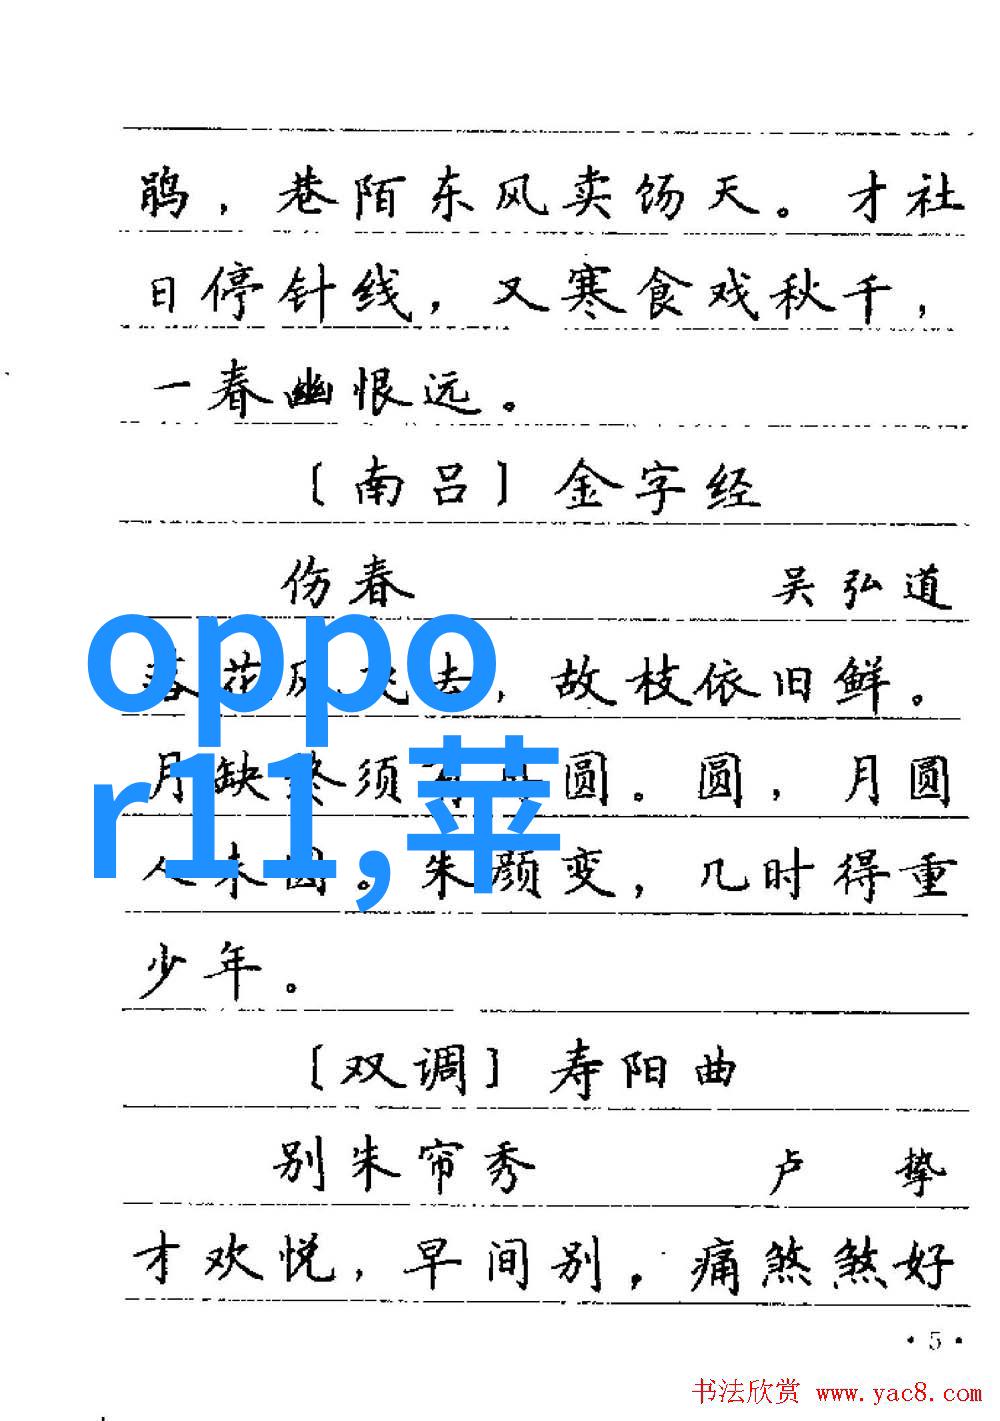 鹃，巷陌东风卖饧天。才社
日停针线，又寒食戏秋千，
一春幽恨远。
〔南吕〕金字经
伤春 吴弘道
落花风飞去，故枝依旧鲜。
月缺终须有月圆。圆，月圆
人未圆。朱颜变，几时得重
少年。
〔双调〕寿阳曲
别朱帘秀 卢挚
才欢悦，早间别，痛煞煞好
·5·
书法欣赏 www.yac8.com
oppo
r11,苹